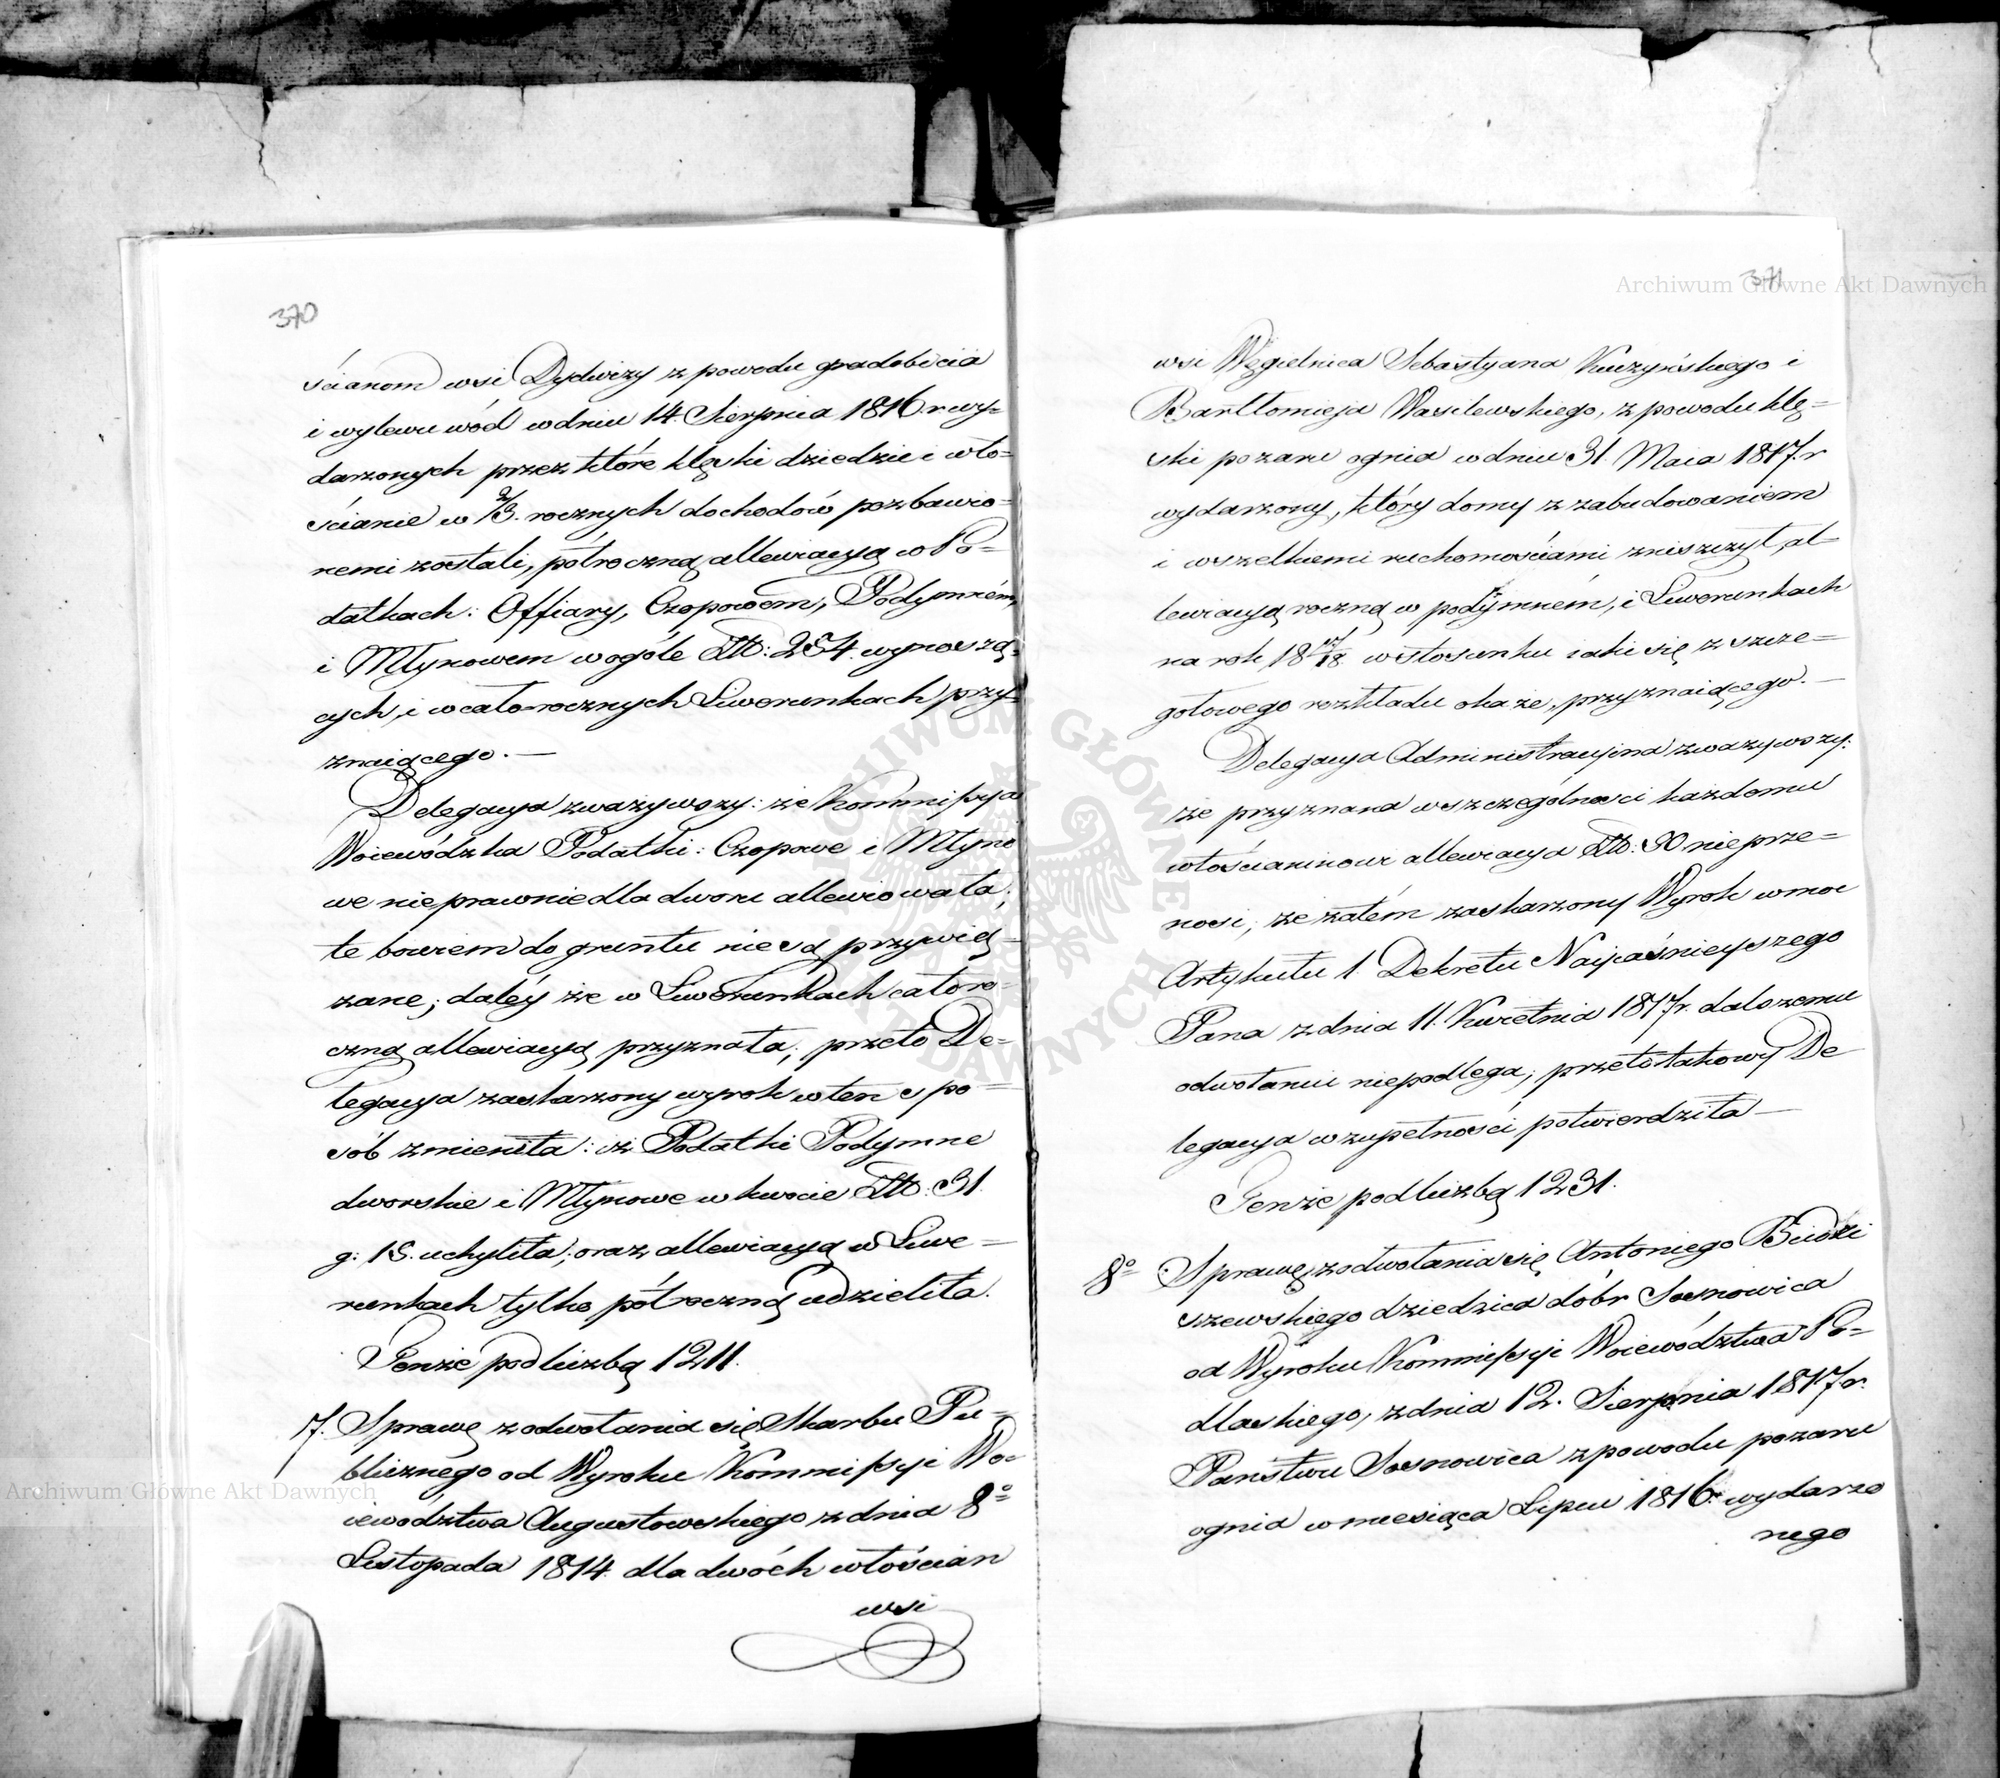 370
ścianom wsi Dydwizy z powodu gradobicia
i wylewu wód w dniu 14. Sierpnia 1816 r wy=
darzonych przez które klęski dziedzic i wło=
ścianie w 2/3. rocznych dochodów pozbawio=
nemi zostali, półroczną allewiacyą w Po=
datkach: Offiary, Czopowem, Podymném,
i Młynowem w ogóle Złt: 254. wynoszą=
cych, i w cało-rocznych Liwerunkach przy=
znaiącego. —
Delegacya zważywszy: że Kommissya
Woiewódzka Podatki: Czopowe i Młyno
we nieprawnie dla dworu allewiowała;
te bowiem do gruntu nie są przywią=
zane; daléy że w Liwerunkach całoro=
czną allewiacyą przyznała; przeto De=
legacya zaskarzony wyrok w ten spo=
sób zmieniła: iż Podatki Podymne
dworskie i Młynowe w kwocie Złt: 31.
g: 15. uchyliła; oraz allewiacyą w Liwe=
runkach tylko półroczną udzieliła.
Tenże pod liczbą 1211.
7. Sprawę z odwołania się Skarbu Pu=
blicznego od Wyroku Kommissyi Wo=
iewództwa Augustowskiego z dnia 8º
Listopada 1814. dla dwóch włościan
wsi
371
Archiwum Główne Akt Dawnych
wsi Węgielnica Sebastyana Kuczyńskiego i
Bartłomieja Wasilewskiego, z powodu klę=
ski pozaru ognia w dniu 31. Maia 1817. r
wydarzony, który domy z zabudowaniem
i wszelkiemi ruchomościami zniszczył, al=
lewiacyą roczną w podymném, i Liwerunkach
na rok 18 17/18 w stosunku iaki się z szcze=
gołowego rozkładu okaże, przyznaiącego. —
Delegacya Administracyina zwazywszy:
że przyznana w szczególności kazdemu
włościaninowi allewiacya Złt: 50 nieprze=
nosi; że zatém zaskarzony Wyrok w moc
Artykułu 1. Dekretu Nayiaśnieyszego
Pana z dnia 11. Kwietnia 1817 r. dalszemu
odwołaniu niepodlega; przeto takowy De
legacya w zupełności potwierdziła —
Tenże pod liczbą 1231.
8º Sprawę z odwołania się Antoniego Budzi
szewskiego dziedzica dóbr Sosnowica
od Wyroku Kommissyi Woiewództwa Po=
dlaskiego, z dnia 12. Sierpnia 1817 r.
Państwu Sosnowica z powodu pozaru
ognia w miesiąca Lipcu 1816. wydarzo
nego
Archiwum Główne Akt Dawnych
ARCHIWUM GŁÓWNE AKT DAWNYCH